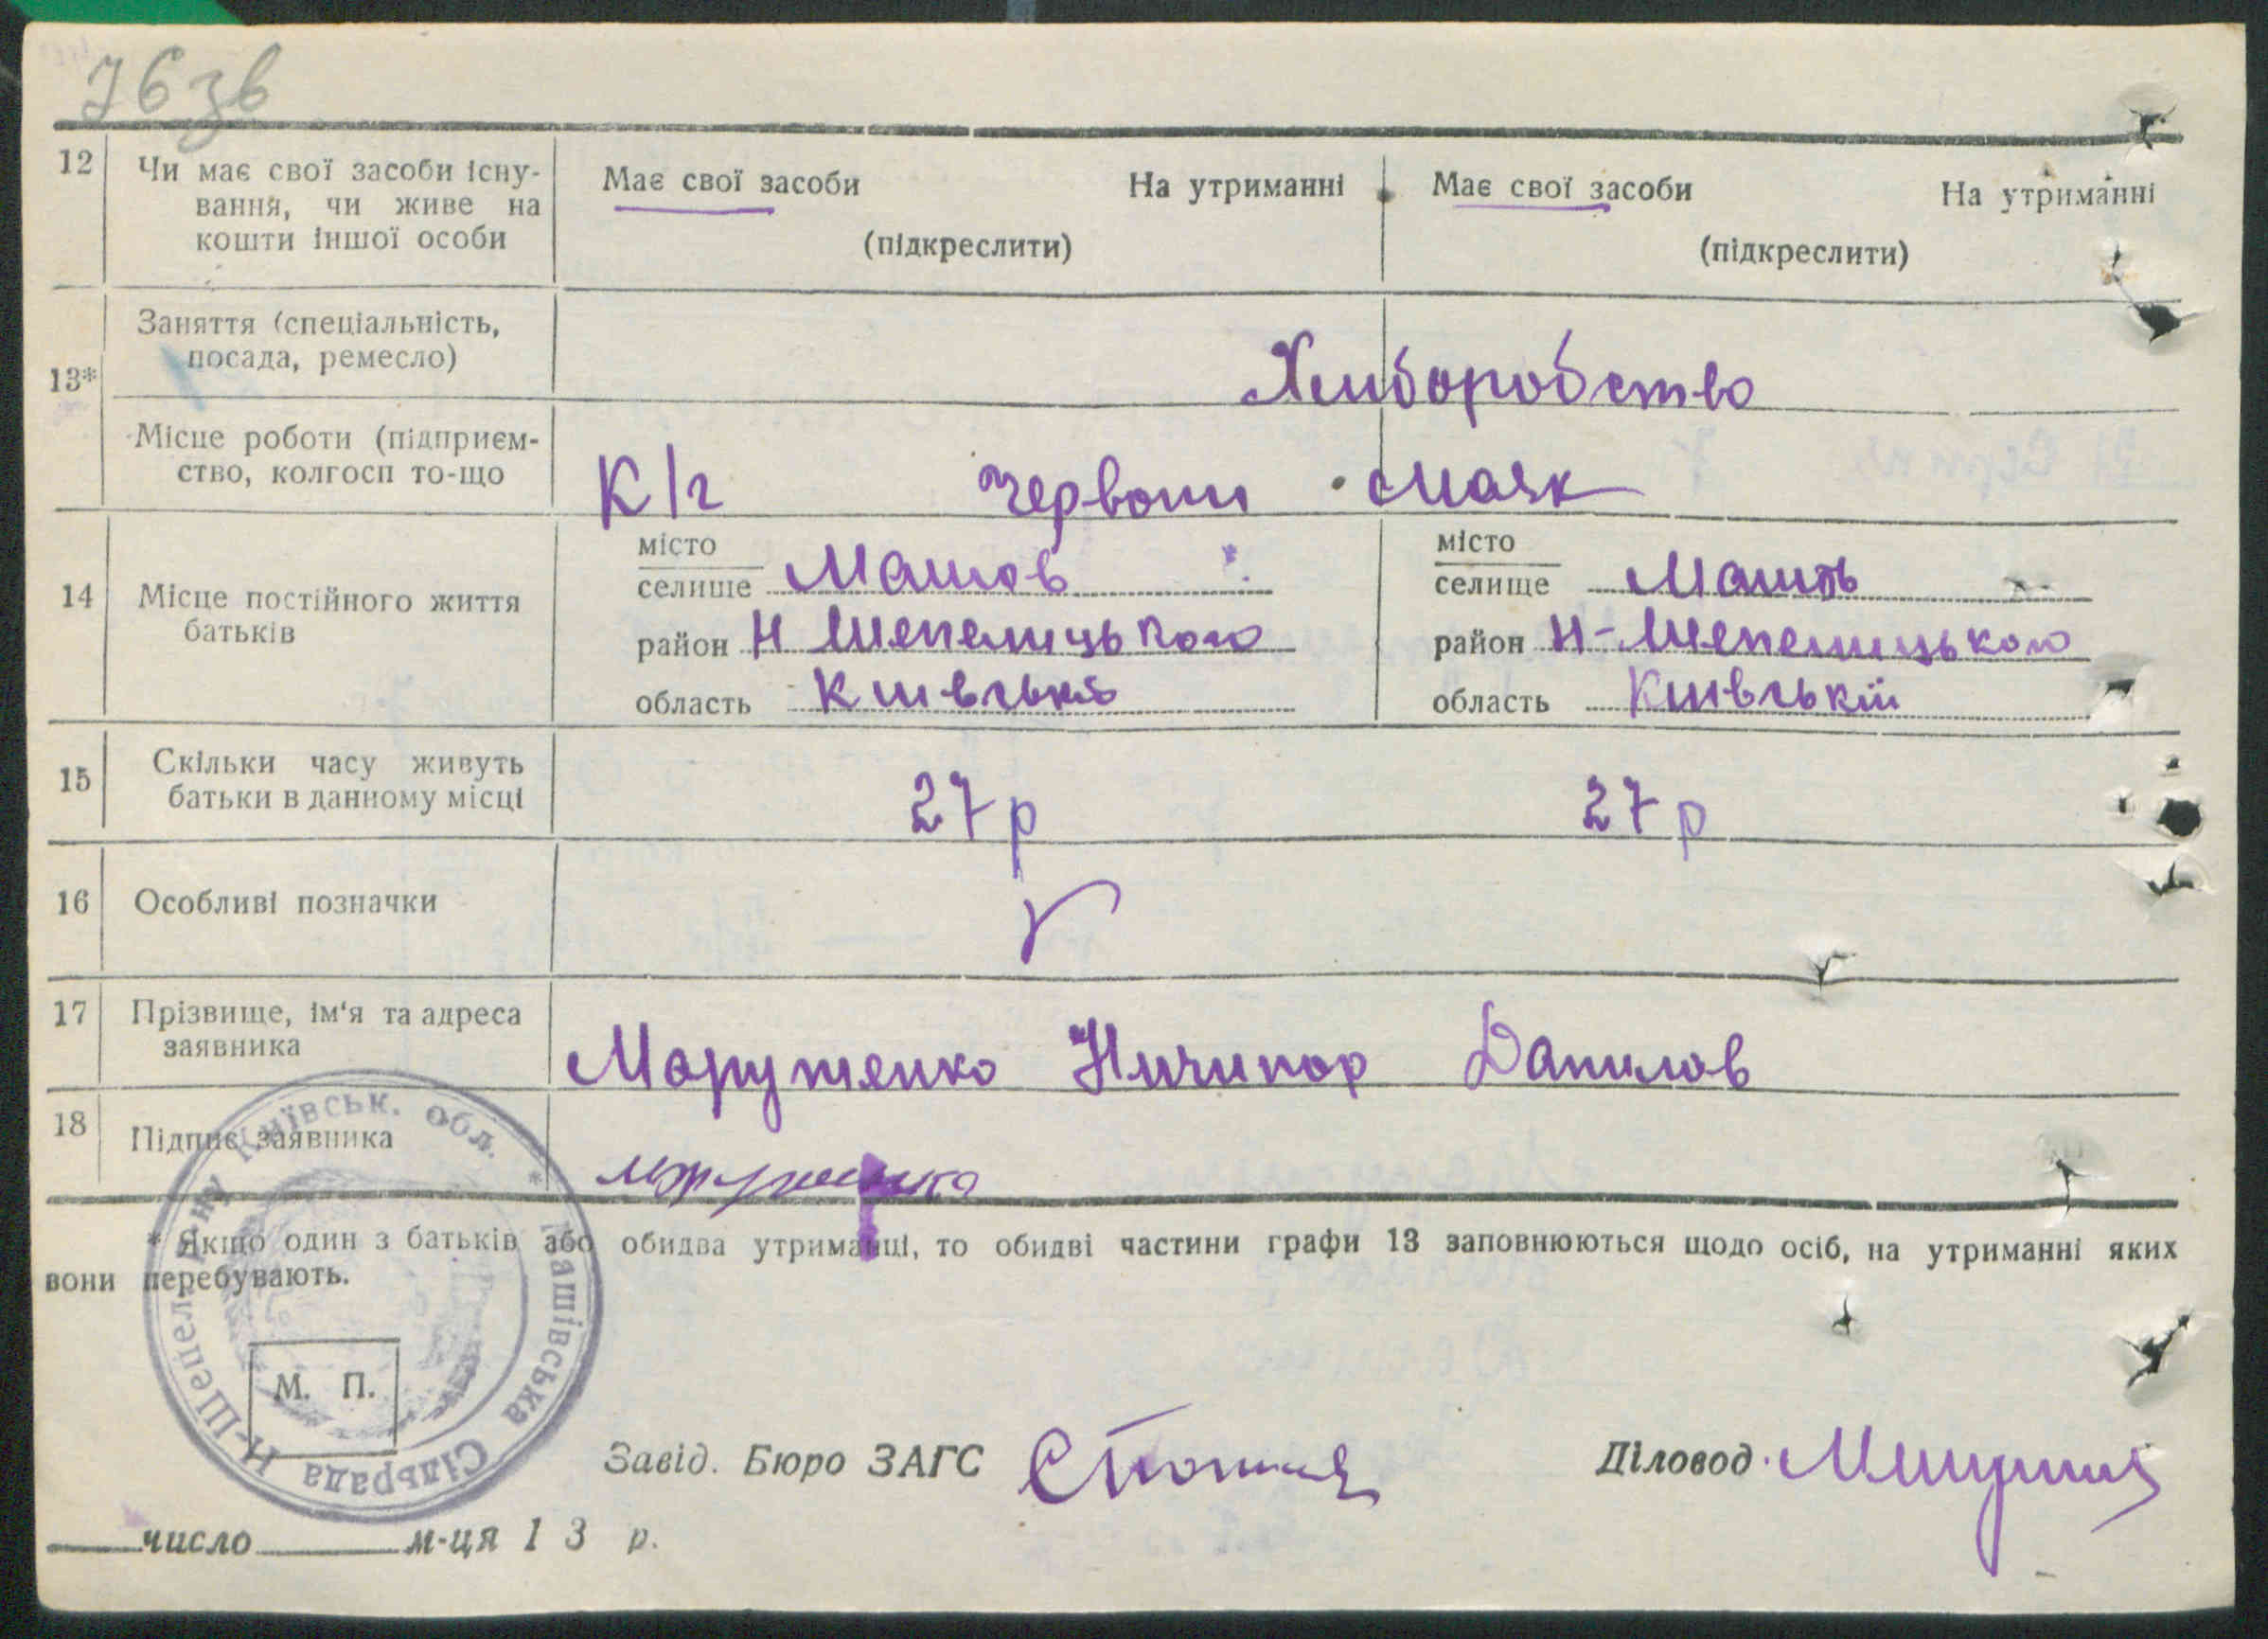 76 зв
12 Чи має свої засоби існу-
вання, чи живе на
кошти іншої особи
Має свої засоби На утриманні
(підкреслити)
Має свої засоби На утриманні
(підкреслити)
13*
Заняття (спеціальність,
посада, ремесло)
Хлиборобство
Місце роботи (підприєм-
ство, колгосп то-що
К/г Червони маяк
14 Місце постійного життя
батьків
місто
селище Машов
район Н Шепелицького
область Киівська
місто
селище Машов
район Н-Шепелицького
область Киівській
15 Скільки часу живуть
батьки в данному місці
27 р 27 р
16 Особливі позначки
17 Прізвище, ім'я та адреса
заявника
Марутенко Ничипор Данилов
18 Підпис заявника
* Якщо один з батьків або обидва утриманці, то обидві частини графи 13 заповнюються щодо осіб, на утриманні яких
вони перебувають.
Машівська Сільрада Н-Шепел. р-ну Київськ. обл. *
М. П.
Завід. Бюро ЗАГС
Діловод
число м-ця 1 3 р.